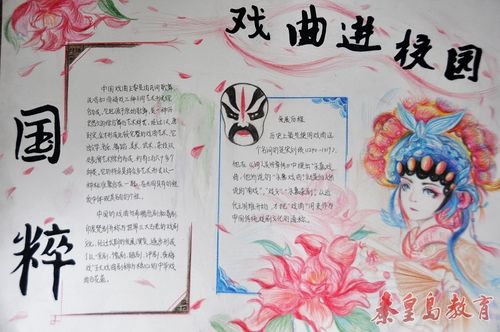 戏曲进校园
国粹
中国戏曲主要是由民间歌舞、
说唱和滑稽戏三种不同艺术形式综
合而成。它起源于原始歌舞,是一种历
史悠久的综合舞台艺术样式。经过汉、唐
到宋、金才形成比较完整的戏曲艺术,它
由文学、音乐、舞蹈、美术、武术、杂技以
及表演艺术综合而成,约有三百六十多个
种类。它的特点是将众多艺术形式以一
种标准聚合在一起,在共同具有的性
质中体现其各自的个性。
中国的戏曲与希腊悲剧和喜剧、
印度梵剧并称为世界三大古老的戏剧
文化,经过长期的发展演变,逐步形成
以“京剧、豫剧、越剧、评剧、黄梅
戏”五大戏曲剧种为核心的中华戏
曲百花苑。
发展历程
历史上最先使用戏曲这
个名词的是宋刘埙(1240-1319),
他在《词人吴用章传》中提出“永嘉戏
曲”,他所说的“永嘉戏曲”,就是后人所
说的“南戏”、
从近
代王国维开始,才把“戏曲”用来作为
中国传统戏剧文化的通称。
秦皇岛教育